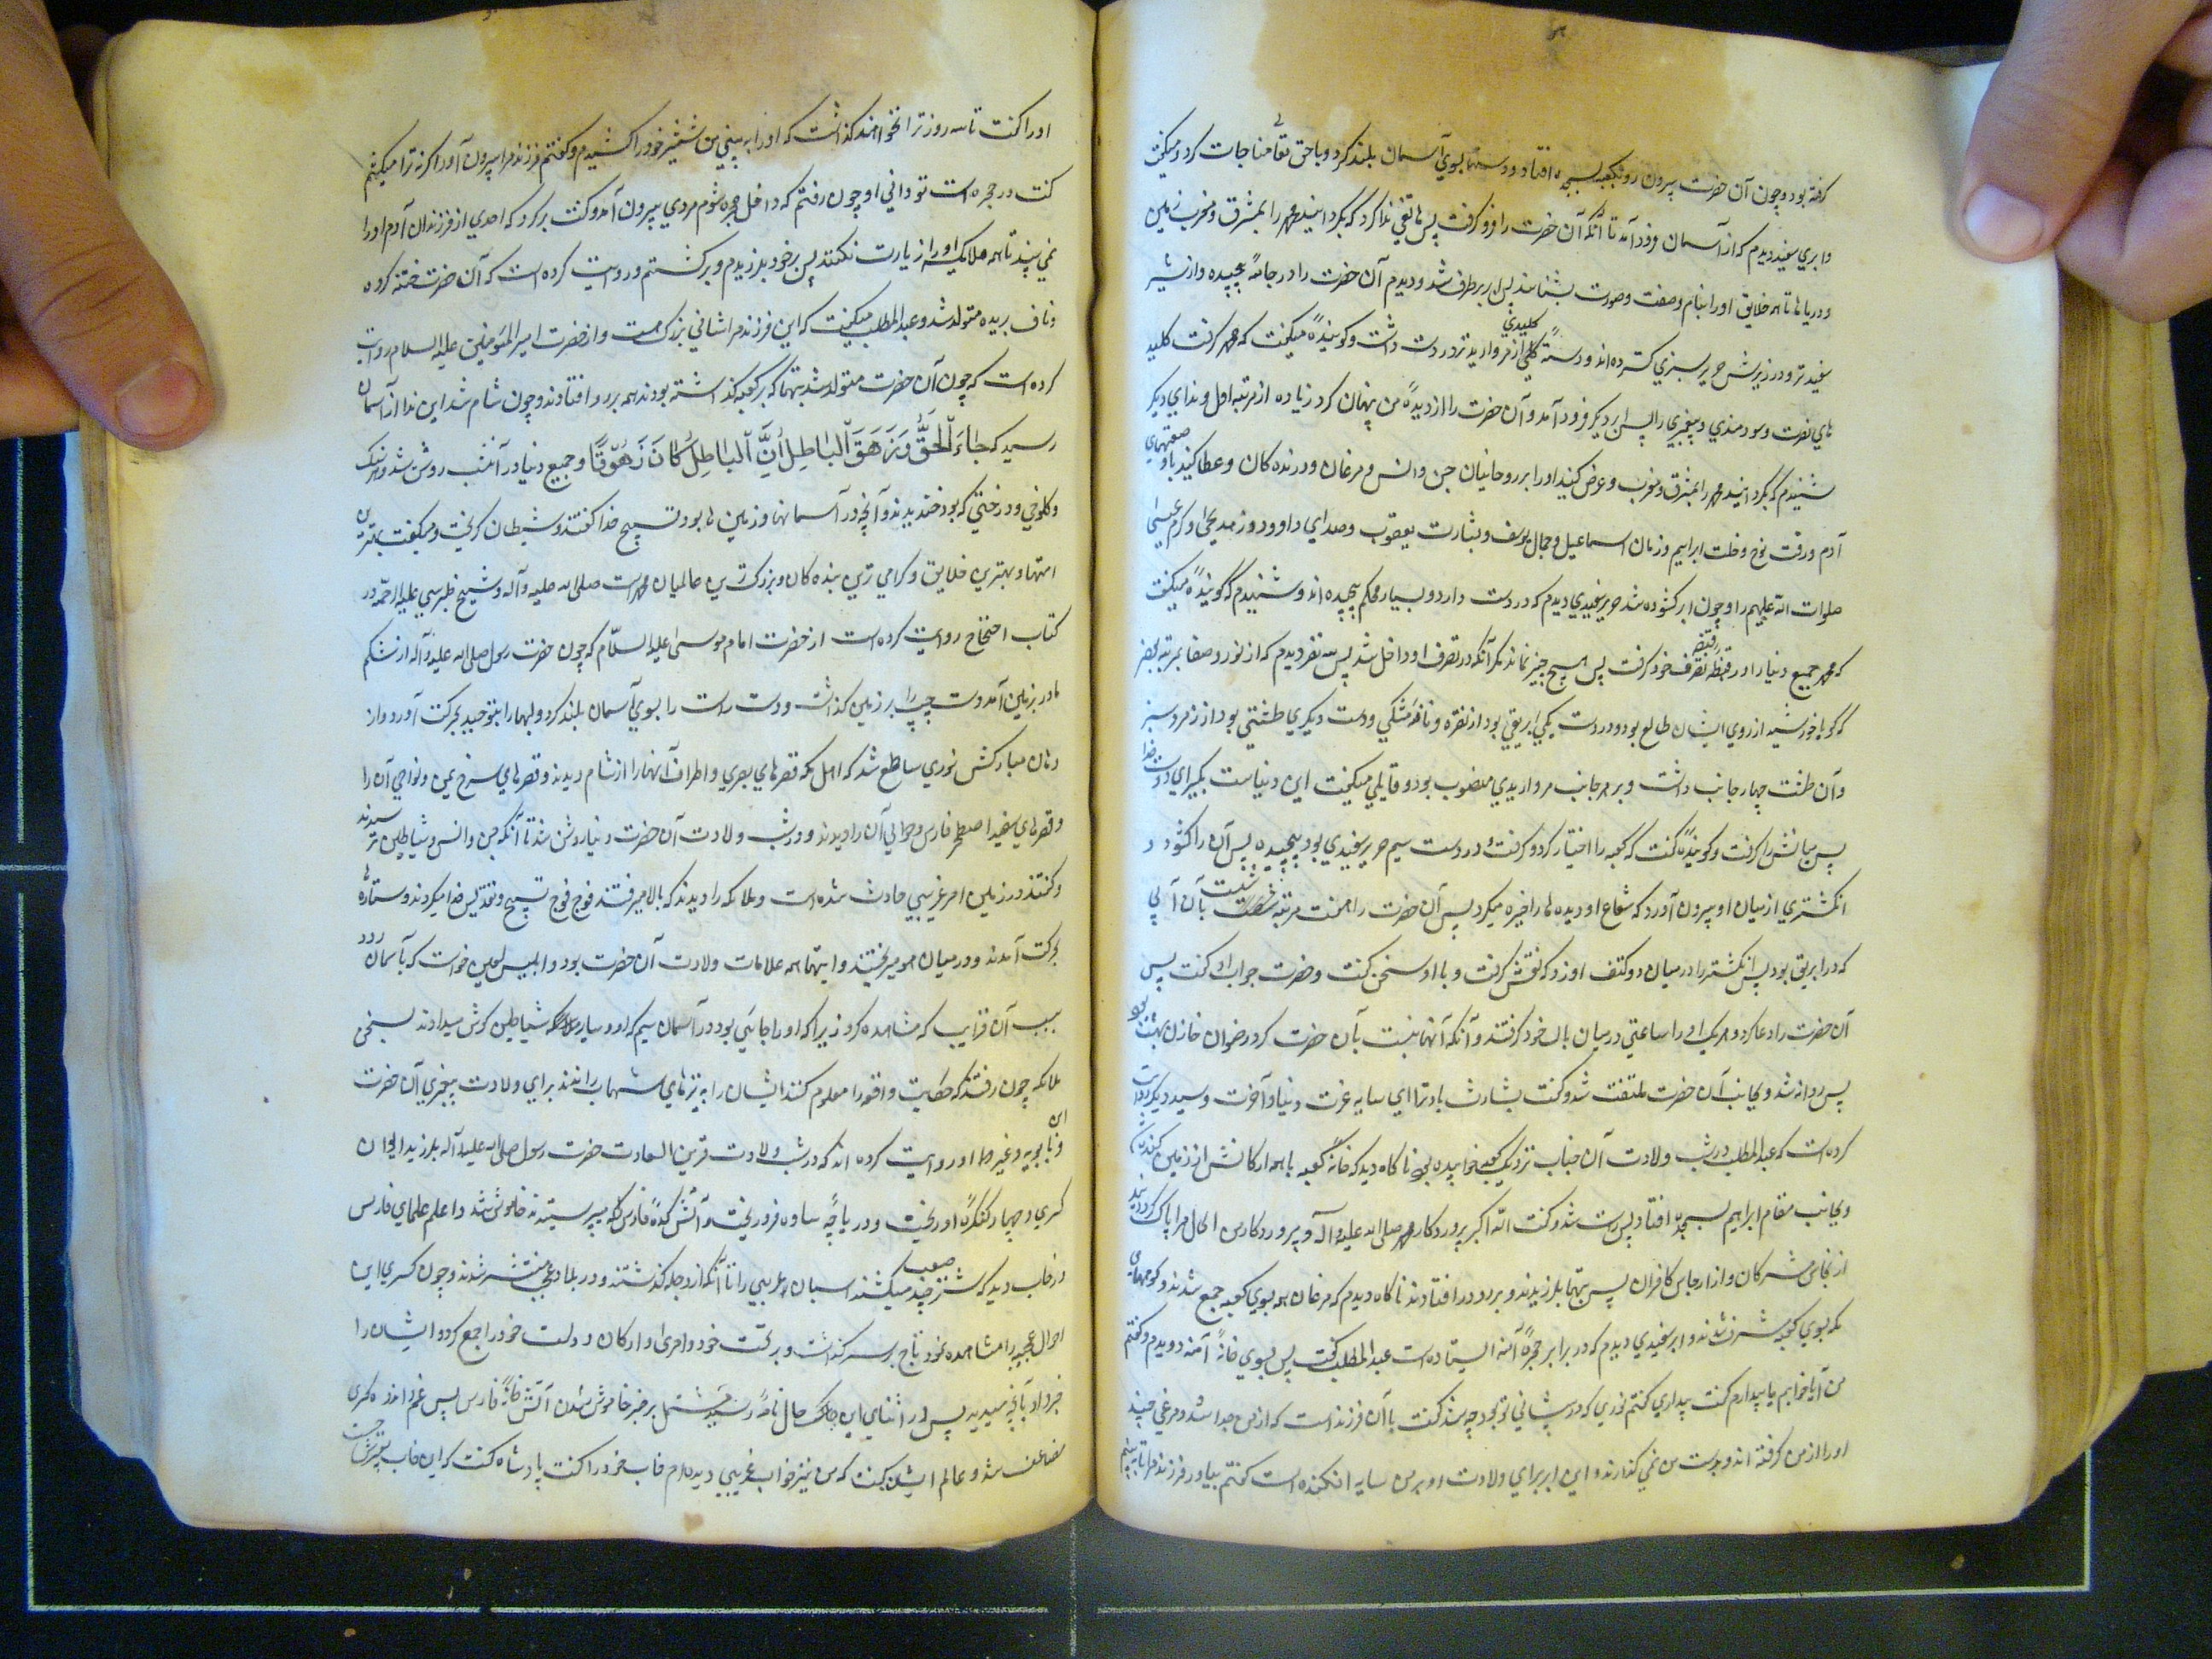 گرفته بود و چون آن حضرت بیرون رو بکعبه بسجده افتاد و دستها بسوی آسمان بلند کرد و با حق تعالی مناجات کرد و میگفت
و ابری سفید دیدم که از آسمان فرود آمد تا آنکه آن حضرت را فرو گرفت پس هاتفی ندا کرد که بگردانید محمد را بمشرق و مغرب زمین
و دریاها تا همه خلایق او را بنام و صفت و صورت بشناسند پس ابر برطرف شد و دیدم آن حضرت را در جامهٔ پیچیده و از شیر
سفیدتر و در زیرش حریر سبزی گسترده‌اند و دستهٔ کلیدی از مروارید تر در دست داشت و گویندهٔ میگفت که محمد گرفت کلید
های نصرت و سودمندی و پیغمبری را پس ابر دیگر فرود آمد و آن حضرت را از دیدهٔ من پنهان کرد زیاده از مرتبه اول و ندای دیگر
شنیدم که بگردانید محمد را بمشرق و مغرب و عرض کنید او را بر روحانیان جن و انس و مرغان و درندگان و عطا کنید باو صفتهای
آدم و رقت نوح و خلت ابراهیم و زبان اسماعیل و جمال یوسف و بشارت یعقوب و صدای داود و زهد یحیی و کرم عیسی
صلوات الله علیهم را و چون ابر گشوده شد حریر سفیدی دیدم که در دست دارد و بسیار محکم پیچیده‌اند و شنیدم که گویندهٔ میگفت
که محمد جمیع دنیا را در قبضه تصرف خود گرفت پس هیچ چیز نماند مگر آنکه در تصرف او داخل شد پس سه نفر دیدم که از نور و صفا بمرتبه
که گویا خورشید از روی ایشان طالع بود و در دست یکی ابریقی بود از نقره و نافهٔ مشکی و در دست دیگری طشتی بود از زمرد سبز
و آن طشت چهار جانب داشت و بر هر جانب مرواریدی منصوب بود و قایلی میگفت این دنیاست بگیر ای دوست خدا
پس میانش را گرفت و گویندهٔ گفت که کعبه را اختیار کرد و گرفت و در دست سیم حریر سفیدی بود پیچیده پس آن را گشود و
انگشتری از میان او بیرون آورد که شعاع او دیده‌ها را خیره میکرد پس آن حضرت را هفت مرتبه شست بآن آبی
که در ابریق بود پس انگشتر را در میان دو کتف او زد که نقش گرفت و با او سخن گفت و حضرت جواب او گفت پس
آن حضرت را دعا کرد و هر یک او را ساعتی در میان بال خود گرفتند و آنکه آنها نسبت بآن حضرت کرد رضوان خازن بهشت بود
پس روانه شد و بجانب آن حضرت ملتفت شد و گفت بشارت باد ترا ای مایه عزت دنیا و آخرت و بسند دیگر روایت
کرده است که عبدالمطلب در شب ولادت آن جناب نزدیک کعبه خوابیده بود ناگاه دید که خانهٔ کعبه با همه ارکانش از زمین کنده شد
و بجانب مقام ابراهیم بسجده افتاد پس راست شد و گفت الله اکبر پروردگار محمد صلی الله علیه و آله و پروردگار من الحال مرا پاک گردانید
از نجاس مشرکان و از ارجاس کافران پس بتها بلرزیدند و بر رو در افتادند ناگاه دیدم که مرغان همه بسوی کعبه جمع شدند و کوههای
مکه بسوی کعبه مشرف شدند و ابر سفیدی دیدم که در برابر حجرهٔ آمنه ایستاده است عبدالمطلب گفت پس بسوی خانهٔ آمنه دویدم و گفتم
من آیا خوابم یا بیدارم گفت بیداری گفتم نوری که در پیشانی تو بود چه شد گفت با آن فرزند است که از من جدا شد و مرغی چند
او را از من گرفته‌اند و بدست من نمی‌گذارند و این ابر برای ولادت او بر من سایه افکنده است گفتم بیاور فرزند مرا تا ببینم
او را گفت تا سه روز ترا نخواهند گذاشت که او را ببینی پس شمشیر خود را کشیدم و گفتم فرزند مرا بیرون آور اگر نه ترا میکشم
گفت در حجره است تو دانی و او چون رفتم که داخل حجره شوم مردی بیرون آمد و گفت برگرد که احدی از فرزندان آدم او را
نمی‌بیند تا همه ملائکه او را زیارت نکنند پس بر خود بلرزیدم و برگشتم و روایت کرده است که آن حضرت ختنه کرده
و ناف بریده متولد شد و عبدالمطلب میگفت که این فرزند مرا شانی بزرگ هست و از حضرت امیرالمؤمنین علیه السلام روایت
کرده است که چون آن حضرت متولد شد بتها که بر کعبه گذاشته بودند همه بر رو افتادند و چون شام شد این ندا از آسمان
رسید که جَاءَ الْحَقُّ وَزَهَقَ الْبَاطِلُ إِنَّ الْبَاطِلَ كَانَ زَهُوقًا و جمیع دنیا در آنشب روشن شد و هر سنگ
و کلوخی و درختی که بود خندیدند و آنچه در آسمانها و زمین‌ها بود تسبیح خدا گفتند و شیطان گریخت و میگفت بهترین
امتها و بهترین خلایق و گرامی‌ترین بنده‌گان و بزرگترین عالمیان محمد است صلی الله علیه و آله و شیخ طبرسی علیه الرحمه در
کتاب احتجاج روایت کرده است از حضرت امام موسی علیه السلام که چون حضرت رسول صلی الله علیه و آله از شکم
مادر بزمین آمد دست چپ را بر زمین گذاشت و دست راست را بسوی آسمان بلند کرد و لبها را بتوحید بحرکت آورد و از
دهان مبارکش نوری ساطع شد که اهل مکه قصرهای بصری و اطراف آنها را از شام دیدند و قصرهای سرخ یمن و نواحی آن را
و قصرهای سفید اصطخر فارس و حوالی آن را دیدند و در شب ولادت آن حضرت دنیا روشن شد تا آنکه جن و انس و شیاطین ترسیدند
و گفتند در زمین امر غریبی حادث شده است و ملائکه را دیدند که بالا میرفتند فوج فوج تسبیح و تقدیس خدا میکردند و ستاره‌ها
بحرکت آمدند و در میان هوا میریختند و اینها همه علامات ولادت آن حضرت بود و ابلیس لعین خواست که بآسمان رود
بسبب آن غرایب که مشاهده کرد زیرا که او را جائی بود در آسمان سیم که او و سایر شیاطین گوش میدادند بسخن
ملائکه چون رفتند که حقیقت واقعه را معلوم کنند ایشان را به تیرهای شهاب راندند برای ولادت پیغمبری آن حضرت
و ابن بابویه و غیر او روایت کرده‌اند که در شب ولادت قرین السعادت حضرت رسول صلی الله علیه و آله بلرزید ایوان
کسری و چهارده کنگرهٔ او ریخت و دریاچهٔ ساوه فرو ریخت و آتش کدهٔ فارس که میپرستیدند خاموش شد و اعلم علمای فارس
در خواب دید که شتر صعب چند میکشند اسبان عربی را تا آنکه از دجله گذشتند و در بلاد عجم منتشر شدند و چون کسری این
احوال عجیبه را مشاهده نمود تاج بر سر گذاشت و بر تخت خود و امرا و ارکان دولت خود را جمع کرد و ایشان را
خبر داد بآنچه دید پس در اثنای این حال نامهٔ رسید مشتمل بر خبر خاموش شدن آتش خانهٔ فارس پس غم و اندوه کسری
مضاعف شد و عالم ایشان گفت که من نیز خواب غریبی دیده‌ام خواب خود را گفت پادشاه گفت که این خواب تعبیرش چیست